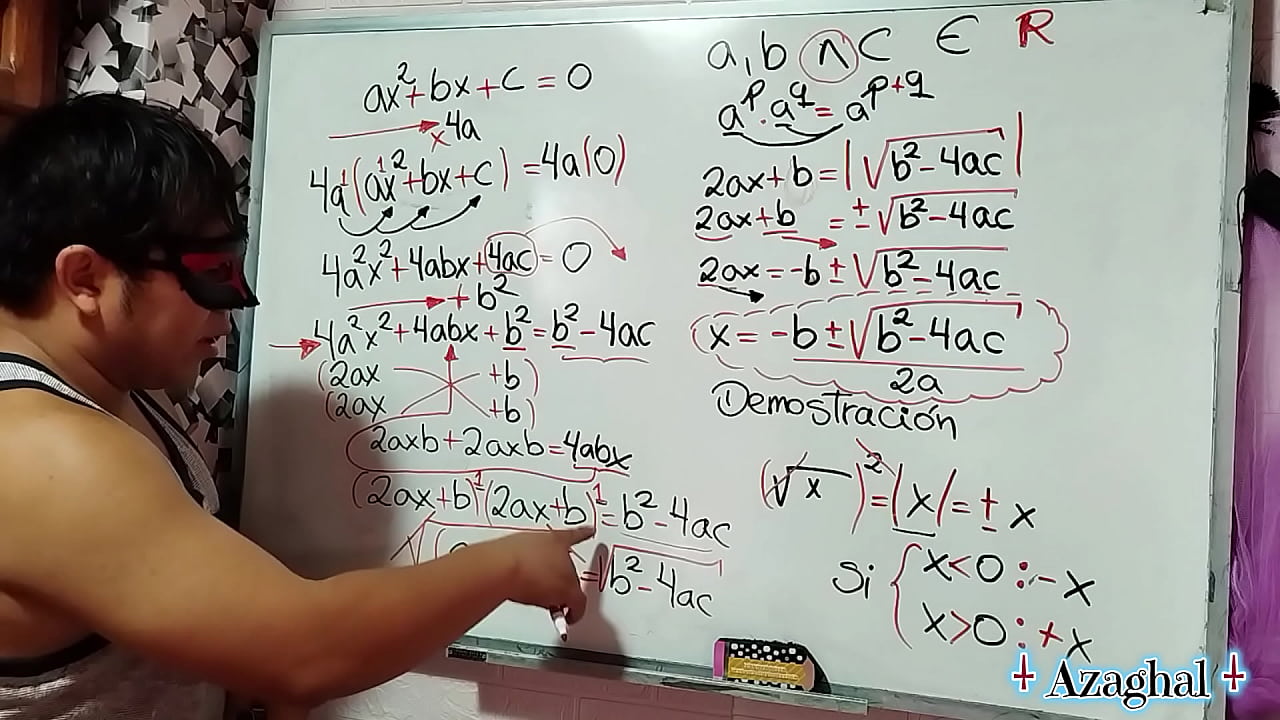 ax²+bx+c=0
x4a
4a¹(a¹x²+bx+c)=4a(0)
4a²x²+4abx+4ac=0
+b²
4a²x²+4abx+b²=b²-4ac
(2ax +b)
(2ax +b)
2axb+2axb=4abx
(2ax+b)¹(2ax+b)¹=b²-4ac
=√b²-4ac
a,b ∧ C ∈ R
aᵖ.a^q=a^p+q
2ax+b=|√b²-4ac|
2ax+b =±√b²-4ac
2ax=-b±√b²-4ac
x=-b±√b²-4ac
2a
Demostración
(√x)²=|x|=±x
Si { x<0:-x
x>0:+x
Azaghal